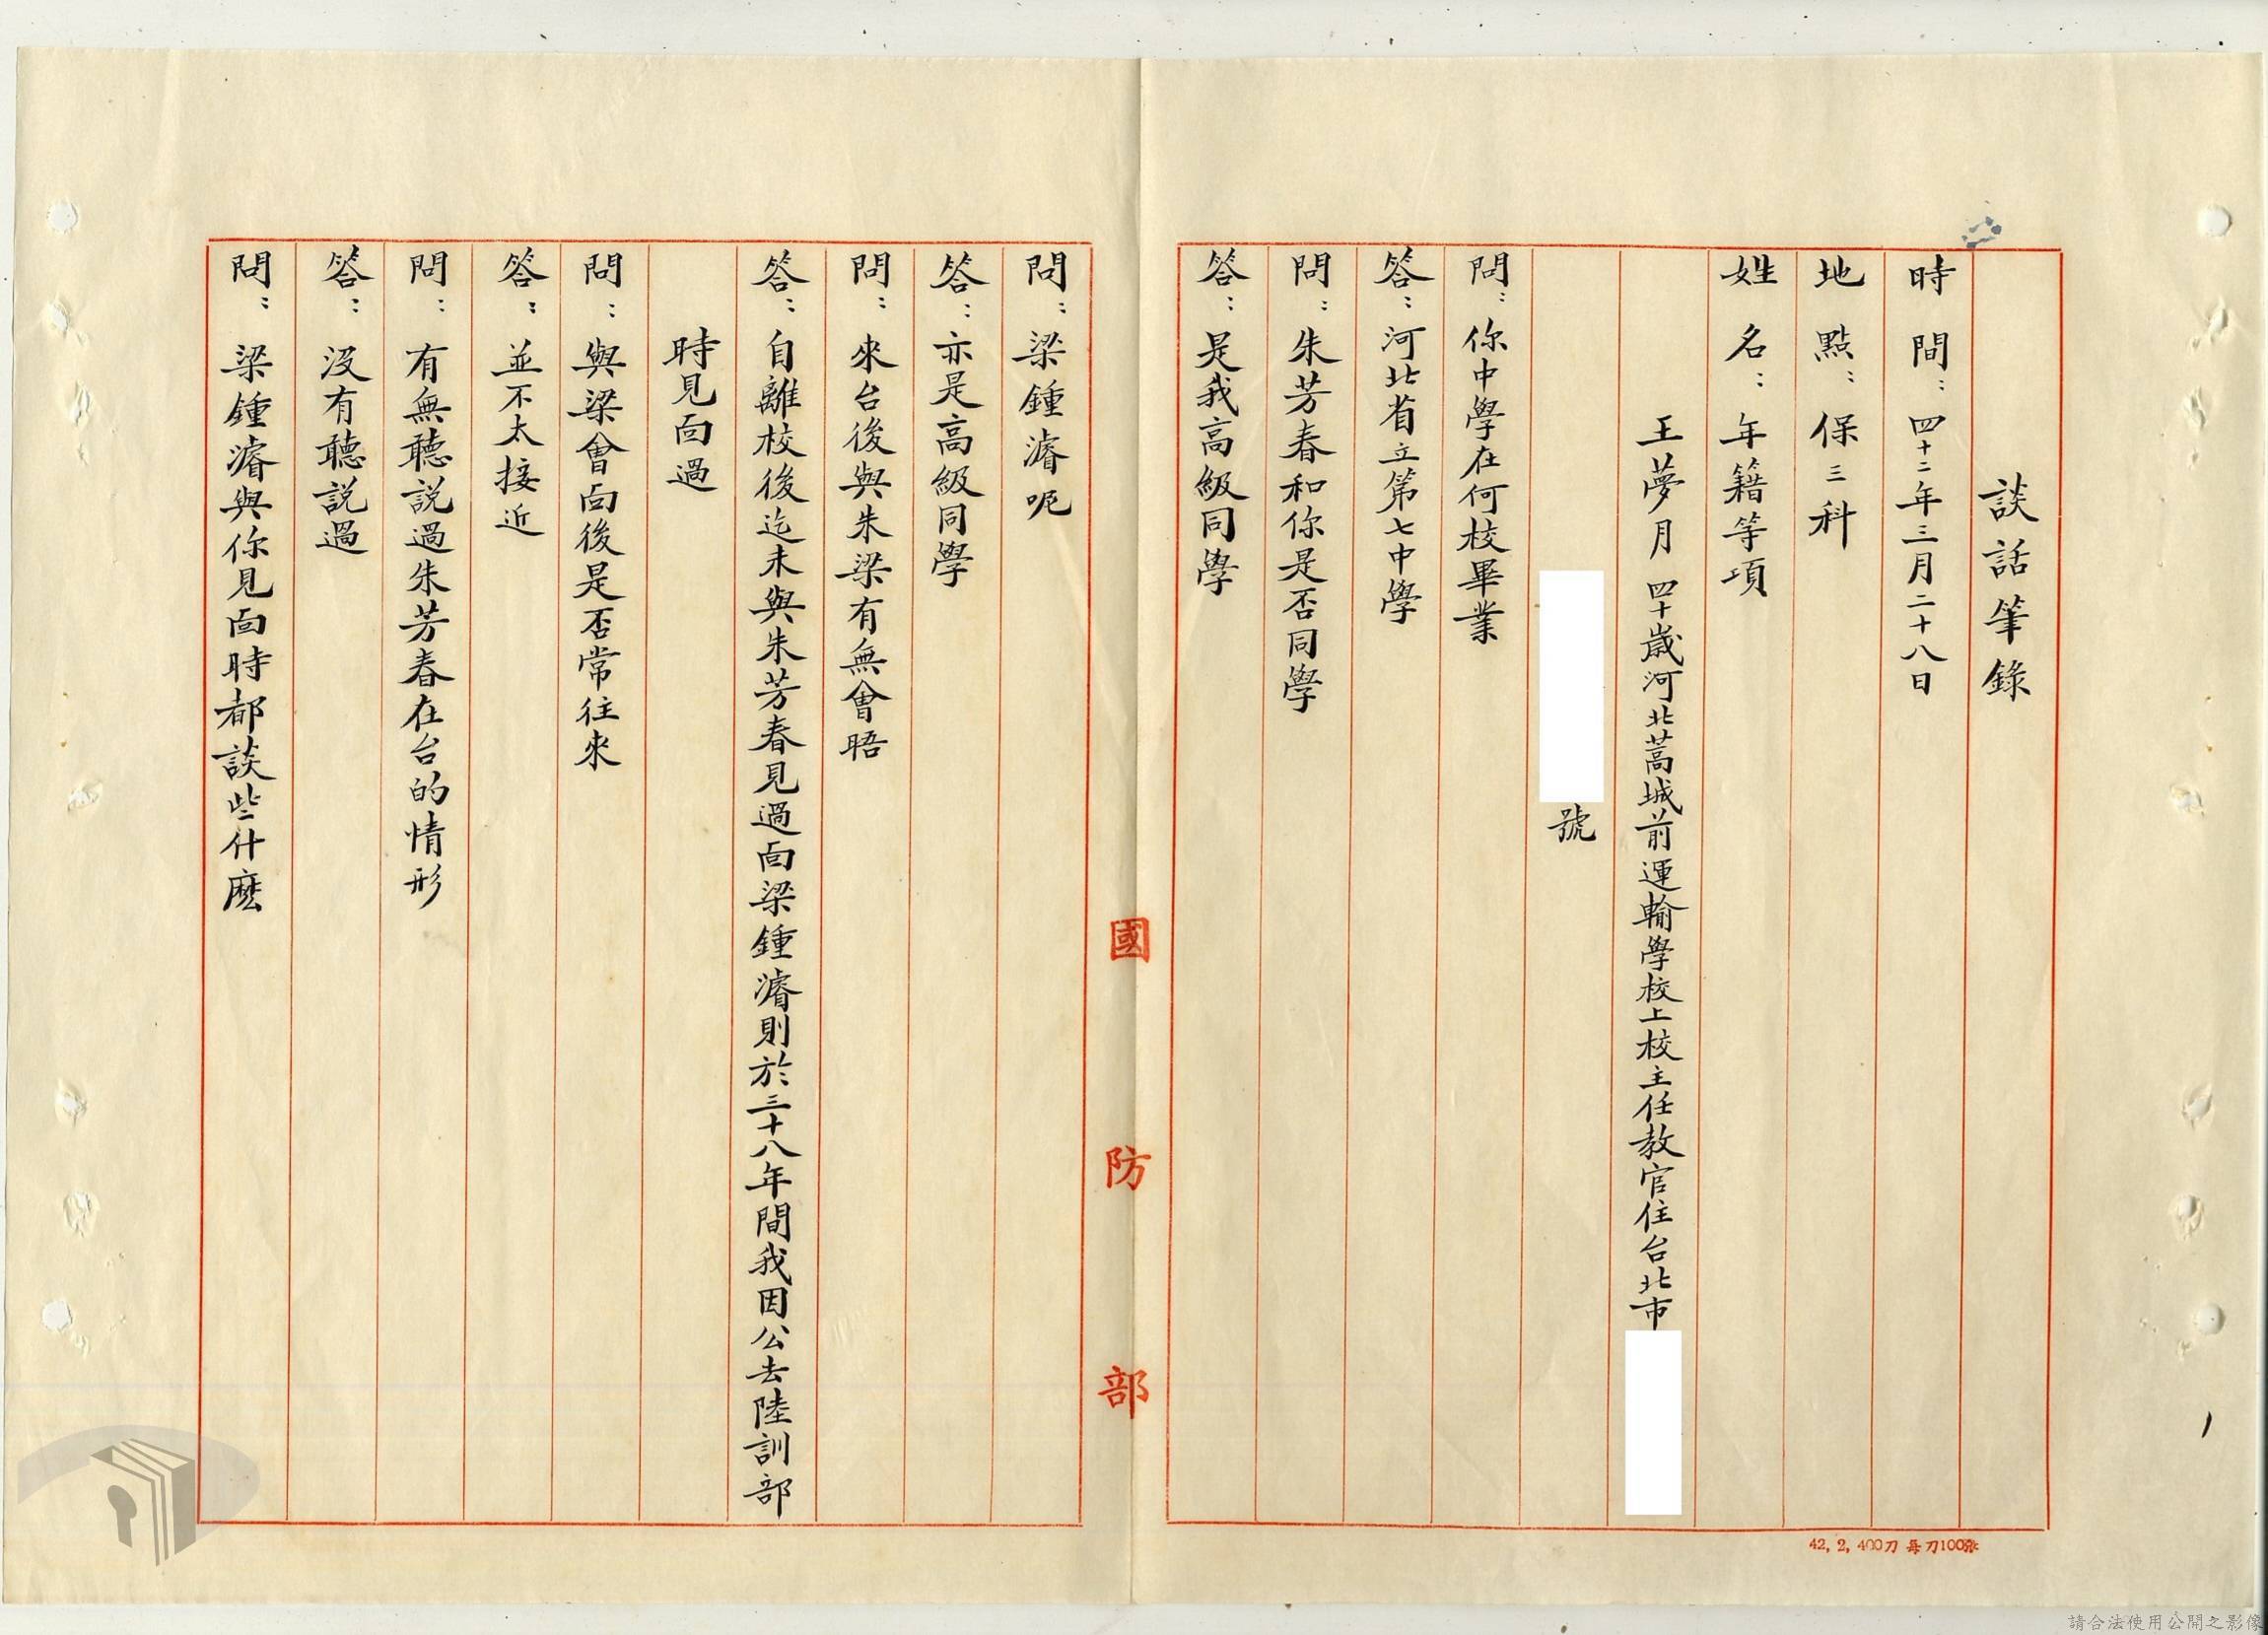 談話筆錄
時間：四十二年三月二十八日
地點：保三科
姓名：年籍等項
王夢月 四十歲河北蒿城前運輸學校上校主任教官住台北市
號
問：你中學在何校畢業
答：河北省立第七中學
問：朱芳春和你是否同學
答：是我高級同學
國防部
問：梁鍾濬呢
答：亦是高級同學
問：來台後與朱梁有無會晤
答：自離校後迄未與朱芳春見過面梁鍾濬則於三十八年間我因公去陸訓部
時見面過
問：與梁會面後是否常往來
答：並不太接近
問：有無聽說過朱芳春在台的情形
答：沒有聽說過
問：梁鍾濬與你見面時都談些什麼
42, 2, 400刀 每刀100張
請合法使用公開之影像